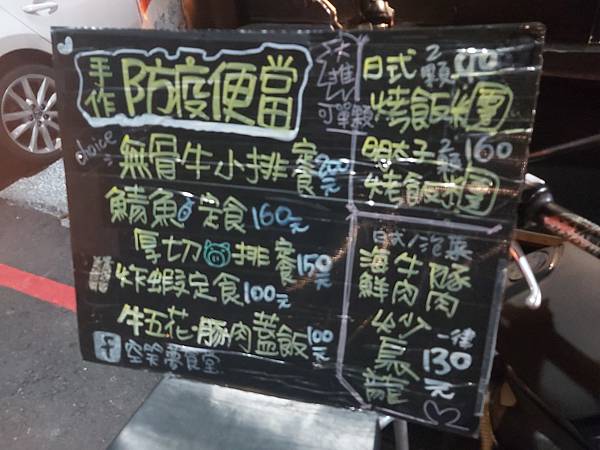 手作 防疫便當
choice
無骨牛小排定食 200元
鯖魚定食 160元
厚切排定食 150元
炸蝦定食 100元
牛五花·豚肉蓋飯 100元
大推 可單顆
日式 2顆
烤飯糰
明太子 2顆 160
烤飯糰
日式/泡菜
海鮮 牛肉 豚肉
炒烏龍
一律 130元